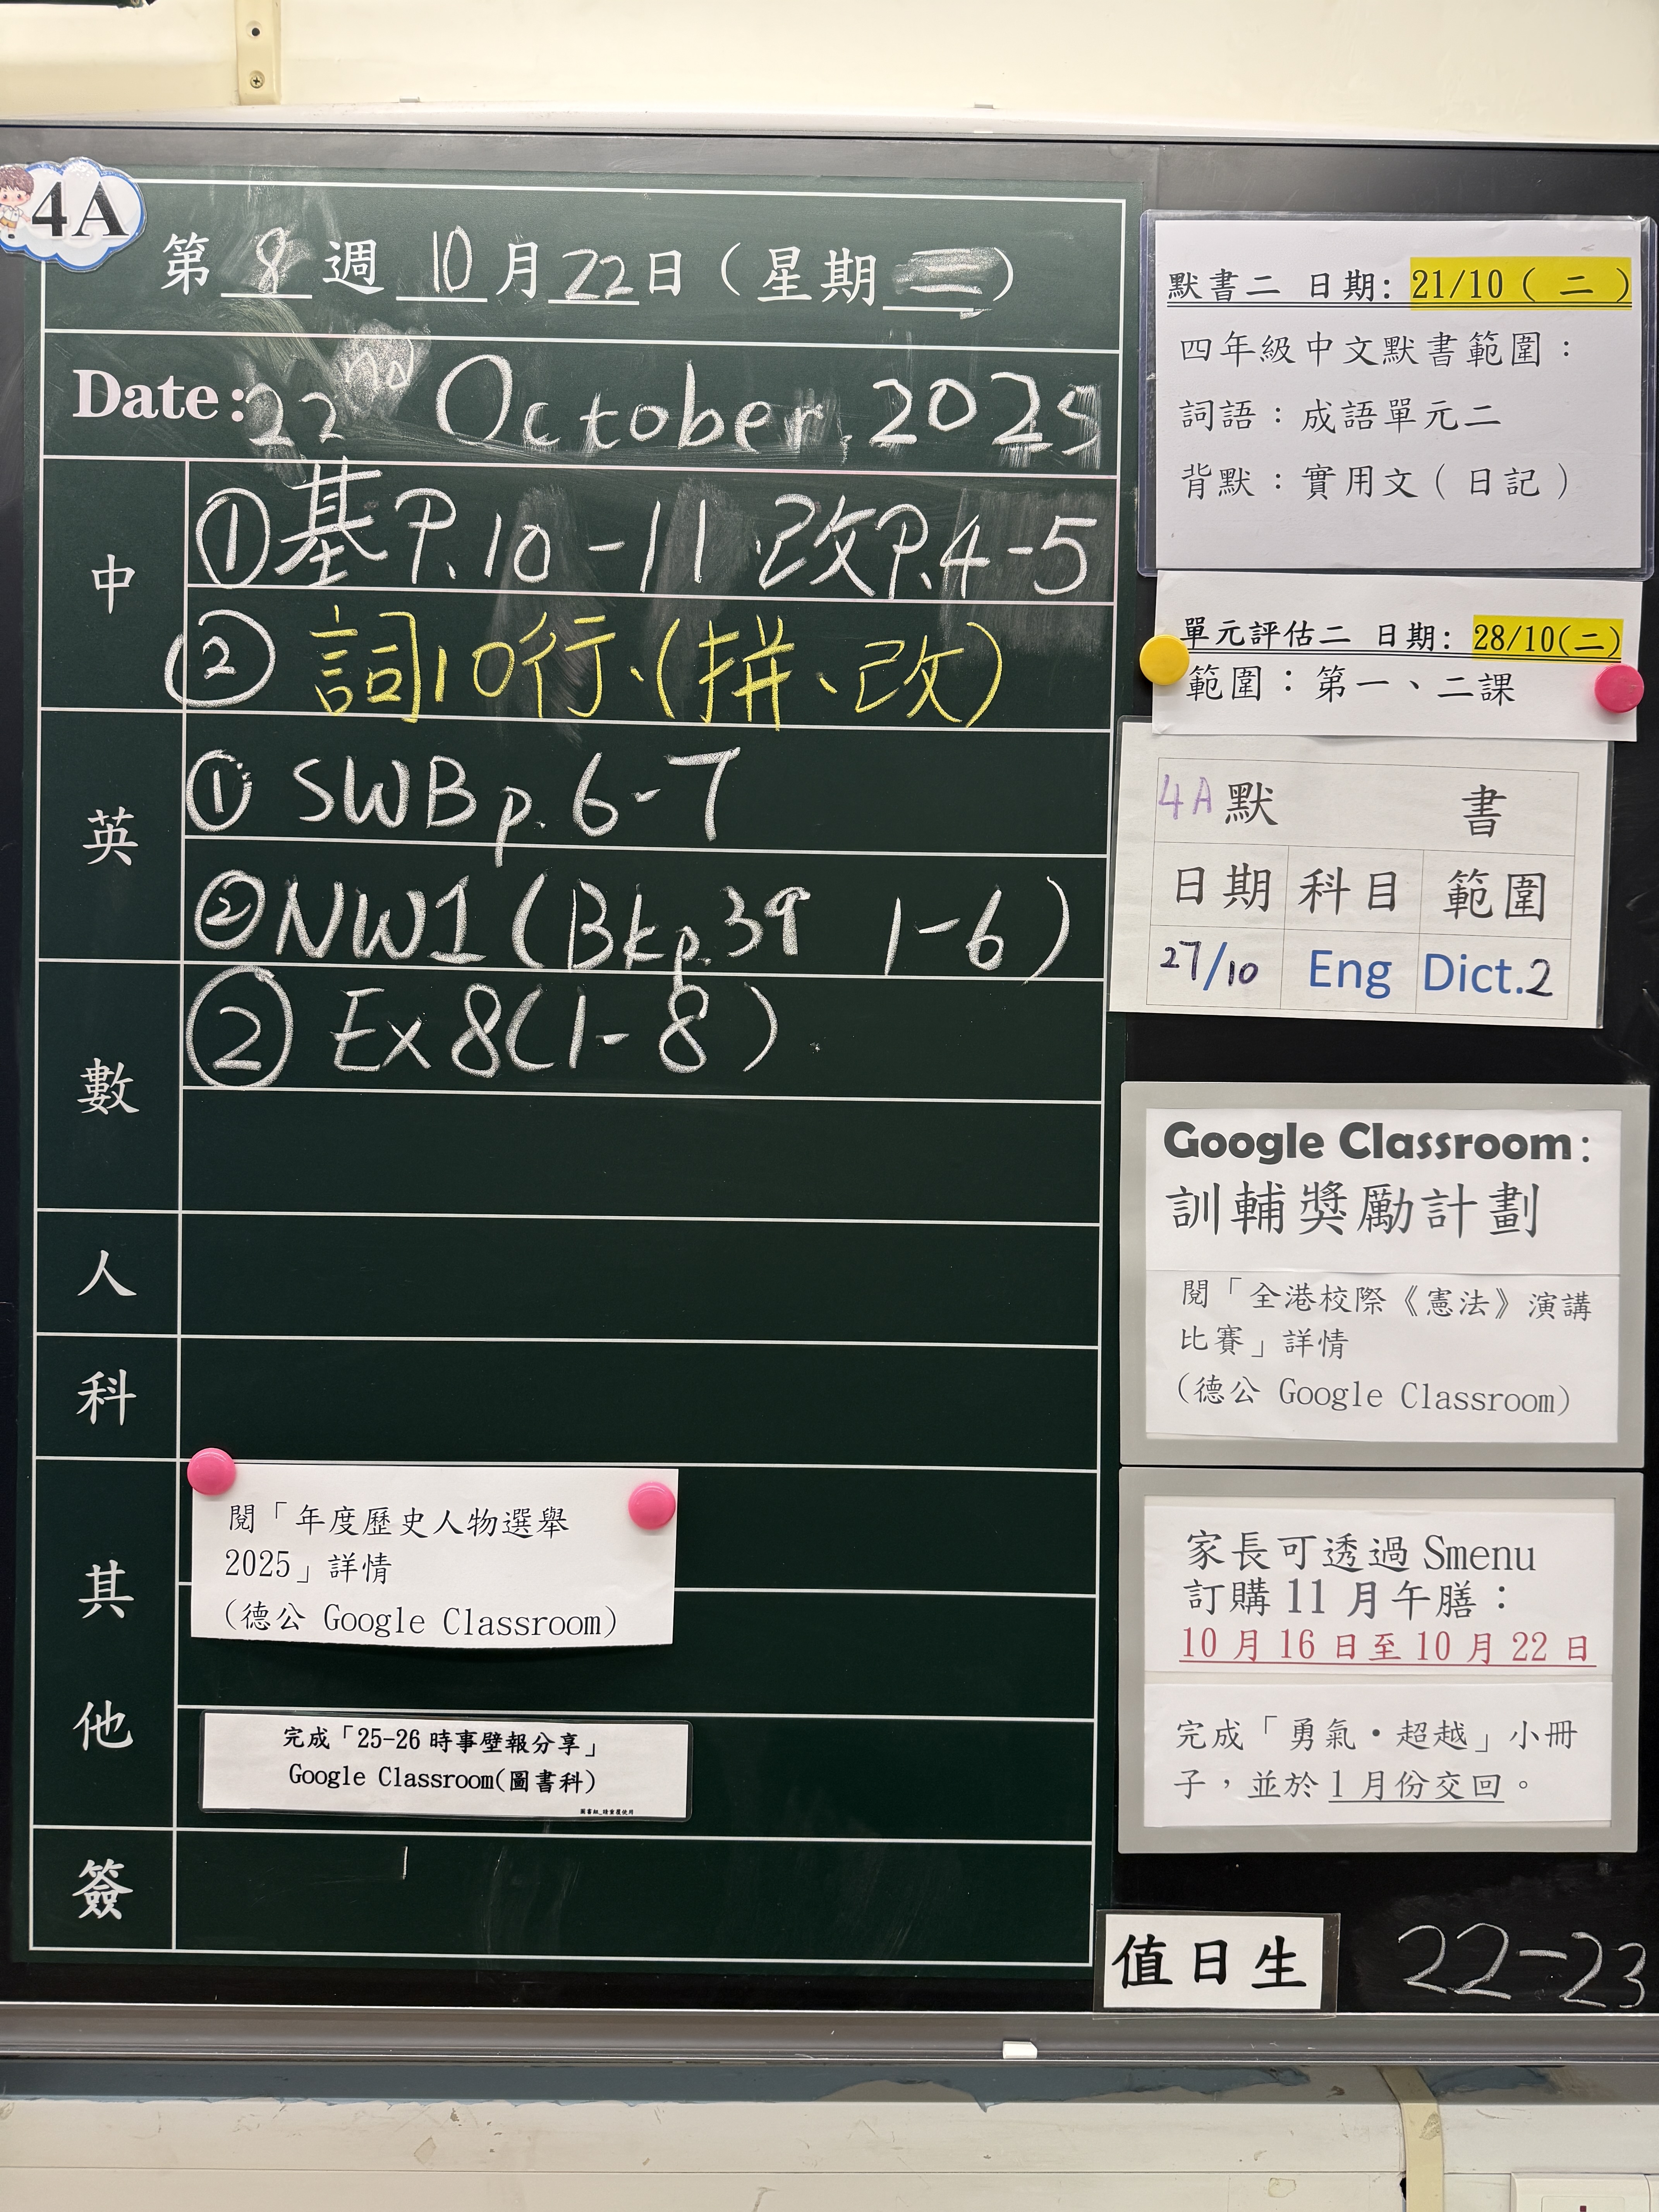 4A
第 8 週 10 月 22 日（星期 三）
Date: 22nd October, 2025
中
① 基 P.10-11 改 P.4-5
② 詞10行、(拼、改)
英
① SWB p.6-7
② NW1 (Bk p.39 1-6)
數
② Ex 8(1-8)
人
科
其他
閱「年度歷史人物選舉
2025」詳情
(德公 Google Classroom)
完成「25-26 時事壁報分享」
Google Classroom(圖書科)
簽
默書二 日期: 21/10 ( 二 )
四年級中文默書範圍：
詞語：成語單元二
背默：實用文（日記）
單元評估二 日期: 28/10(二)
範圍：第一、二課
4A 默 書
日期 科目 範圍
27/10 Eng Dict.2
Google Classroom:
訓輔獎勵計劃
閱「全港校際《憲法》演講
比賽」詳情
(德公 Google Classroom)
家長可透過 Smenu
訂購 11 月午膳：
10 月 16 日至 10 月 22 日
完成「勇氣・超越」小冊
子，並於 1 月份交回。
值日生 22-23